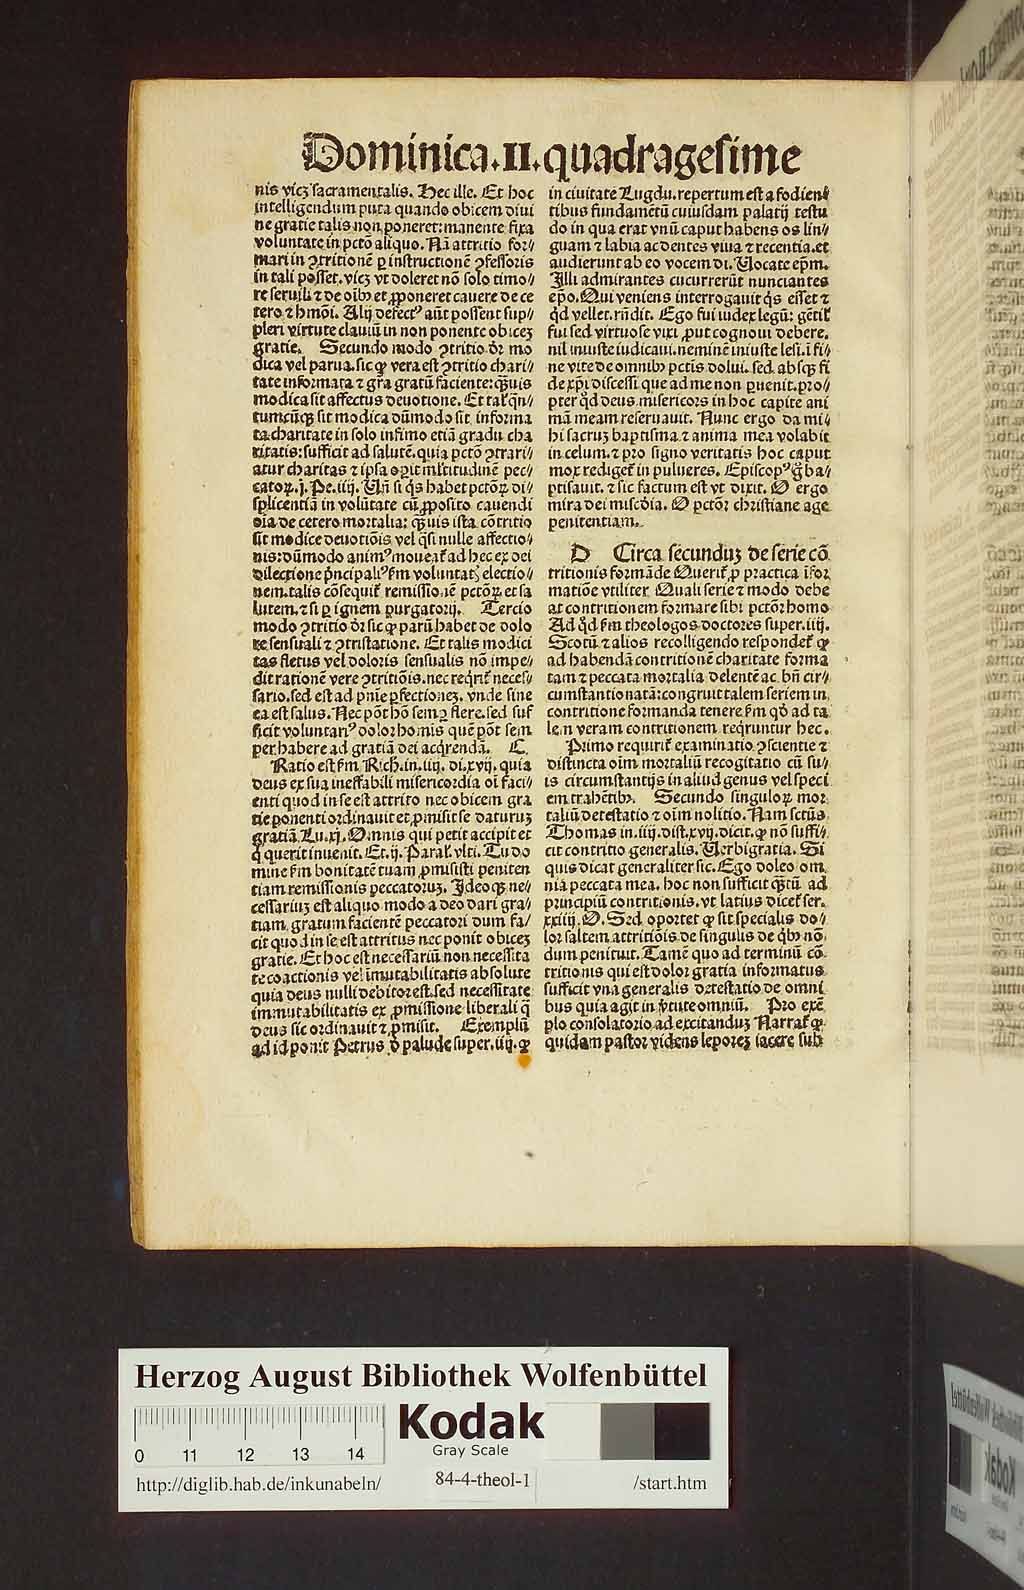 Dominica.II.quadragesime
nis vicꝫ sacramentalis. Hec ille. Et hoc
intelligendum puta quando obicem diui
ne gratie talis non poneret: manente fixa
voluntate in pctō aliquo. Nā attritio for⸗
mari in ꝯtritionē ꝑ instructionē ꝯfessoris
in tali posset. vicꝫ vt doleret nō solo timo⸗
re seruili ⁊ de oībꝰ et ꝓponeret cauere de ce
tero ⁊ hmōi. Alij defectꝰ aūt possent sup⸗
pleri virtute clauiū in non ponente obiceꝫ
gratie. Secundo modo ꝯtritio dr̄ mo
dica vel parua. sic ꝙ vera est ꝯtritio chari⸗
tate informata ⁊ gr̄a gratū faciente: qͣꝫuis
modica sit affectus deuotione. Et
tumcūqꝫ sit modica dūmodo sit informa
ta charitate in solo infimo etiā gradu cha
ritatis: sufficit ad salutē. quia pctō ꝯtrari⸗
atur charitas ⁊ ipsa oꝑit ml̄titudinē pec⸗
catoꝝ. j. Pe. iiij. Vn̄ si qͥs habet pctōꝝ di⸗
splicentiā in volūtate cū ꝓposito cauendi
oīa de cetero mortalia: qͣꝫuis ista cōtritio
sit modice deuotiōis vel qͣsi nulle affectio⸗
nis: dūmodo animꝰ moueat᷑ ad hec ex dei
dilectione pͥncipaliꝰ ẜm voluntat̄ electio⸗
nem. talis cōsequit᷑ remissionē pctōꝝ et sa
lutem. ⁊ si ꝑ ignem purgatorij. Tercio
modo ꝯtritio dr̄ sit ꝙ parū habet de dolo
re sensuali ⁊ ꝯtristatione. Et talis modici
tas fletus vel doloris sensualis nō impe⸗
dit rationē vere ꝯtritiōis. nec reqͥrit᷑ neces⸗
sario. sed est ad pn̄ie ꝑfectioneꝫ. vnde sine
ea est salus. Nec pōt hō semꝑ flere. sed suf
ficit voluntariꝰ dolor hominis quē pōt sem
per habere ad gratiā dei acqͥrendā. C
Ratio est ẜm Rich. in. iiij. di. xvij. quia
deus ex sua ineffabili misericordia oī faci⸗
enti quod in se est attrito nec obicem gra
tie ponenti ordinauit et ꝓmisit se daturuꝫ
gratiā. Lu. xj. Omnis qui petit accipit et
qͥ querit inuenit. Et. ij. Paral. vlti. Tu do
mine ẜm bonitatē tuam ꝓmisisti peniten
tiam remissionis peccatoruꝫ. Ideoqꝫ ne⸗
cessariuꝫ est aliquo modo a deo dari gra⸗
tiam gratum facientē peccatori dum fa⸗
cit quod in se est attritus nec ponit obiceꝫ
gratie. Et hoc est necessariū non necessita
te coactionis vel īmutabilitatis absolute
quia deus nulli debitor est. sed necessitate
immutabilitatis ex ꝓmissione liberali qͣ
deus sic ordinauit ⁊ ꝓmisit. Exemplū
ad id ponit Petrus d̓ palude super. iiij. ꝙ
in ciuitate Lugdu. repertum est a fodien⸗
tibus fundamētū cuiusdam palatij testu
do in qua erat vnū caput habens os lin⸗
guam ⁊ labia ac dentes viua ⁊ recentia. et
audierunt ab eo vocem di. Vocate ep̄m.
Illi admirantes cucurrerūt nunciantes
ep̄o. Qui veniens interrogauit qͥs esset ⁊
qͥd vellet. rn̄dit. Ego fui iudex legū: gētil̓
fui sed virtuose vixi ꝓut cognoui debere.
nil iniuste iudicaui. neminē iniuste lesi. ī fi⸗
ne vite de omnibꝰ pctis dolui. sed absqꝫ fi
de xp̄i discessi que ad me non ꝑuenit. pro⸗
pter qd̓ deus misericors in hoc capite ani
mā meam reseruauit. Nunc ergo da mi⸗
hi sacruꝫ baptisma ⁊ anima mea volabit
in celum. ⁊ pro signo veritatis hoc caput
mox rediget᷑ in pulueres. Episcopꝰ gͦ ba⸗
ptisauit. ⁊ sic factum est vt dixit. O ergo
mira dei mīscdia. O pctōr christiane age
penitentiam.
D Circa secunduꝫ de serie cō
tritionis formāde Querit᷑ ꝓ practica īfor
matiōe vtiliter. Quali serie ⁊ modo debe
at contritionem formare sibi pctōr homo
Ad qd̓ ẜm theologos doctores super. iiij.
Scotū ⁊ alios recolligendo respondet᷑ ꝙ
ad habendā contritionē charitate forma
tam ⁊ peccata mortalia delentē ac bn̄ cir⸗
cumstantionatā: congruit talem seriem in
contritione formanda tenere ẜm qd̓ ad ta
lem veram contritionem reqͥruntur hec.
Primo requirit᷑ examinatio ꝯscientie ⁊
distincta oīm mortaliū recogitatio cū su⸗
is circumstantijs in aliud genus vel speci
em trahētibꝰ. Secundo singuloꝝ mor
taliū detestatio ⁊ oīm nolitio. Nam sctūs
Thomas in. iiij. dist. xvij. dicit. ꝙ nō suffi⸗
cit contritio generalis. Verbigratia. Si
quis dicat generaliter sic. Ego doleo om
nia peccata mea. hoc non sufficit qͣꝫtū ad
principiū contritionis. vt latius dicet᷑ ser.
xxiiij. O. Sed oportet ꝙ sit specialis do⸗
lor saltem attritiōis de singulis de qͥbꝰ nō
dum penituit. Tamē quo ad terminū cō
tritionis qui est dolor gratia informatus
sufficit vna generalis detestatio de omni
bus quia agit in v̓tute omniū. Pro exē
plo consolatorio ad excitanduꝫ Narrat᷑ ꝙ
quidam pastor videns leporeꝫ iacere sub
Herzog August Bibliothek Wolfenbüttel
0 11 12 13 14
Kodak
Gray Scale
http://diglib.hab.de/inkunabeln/ 84-4-theol-1 /start.htm